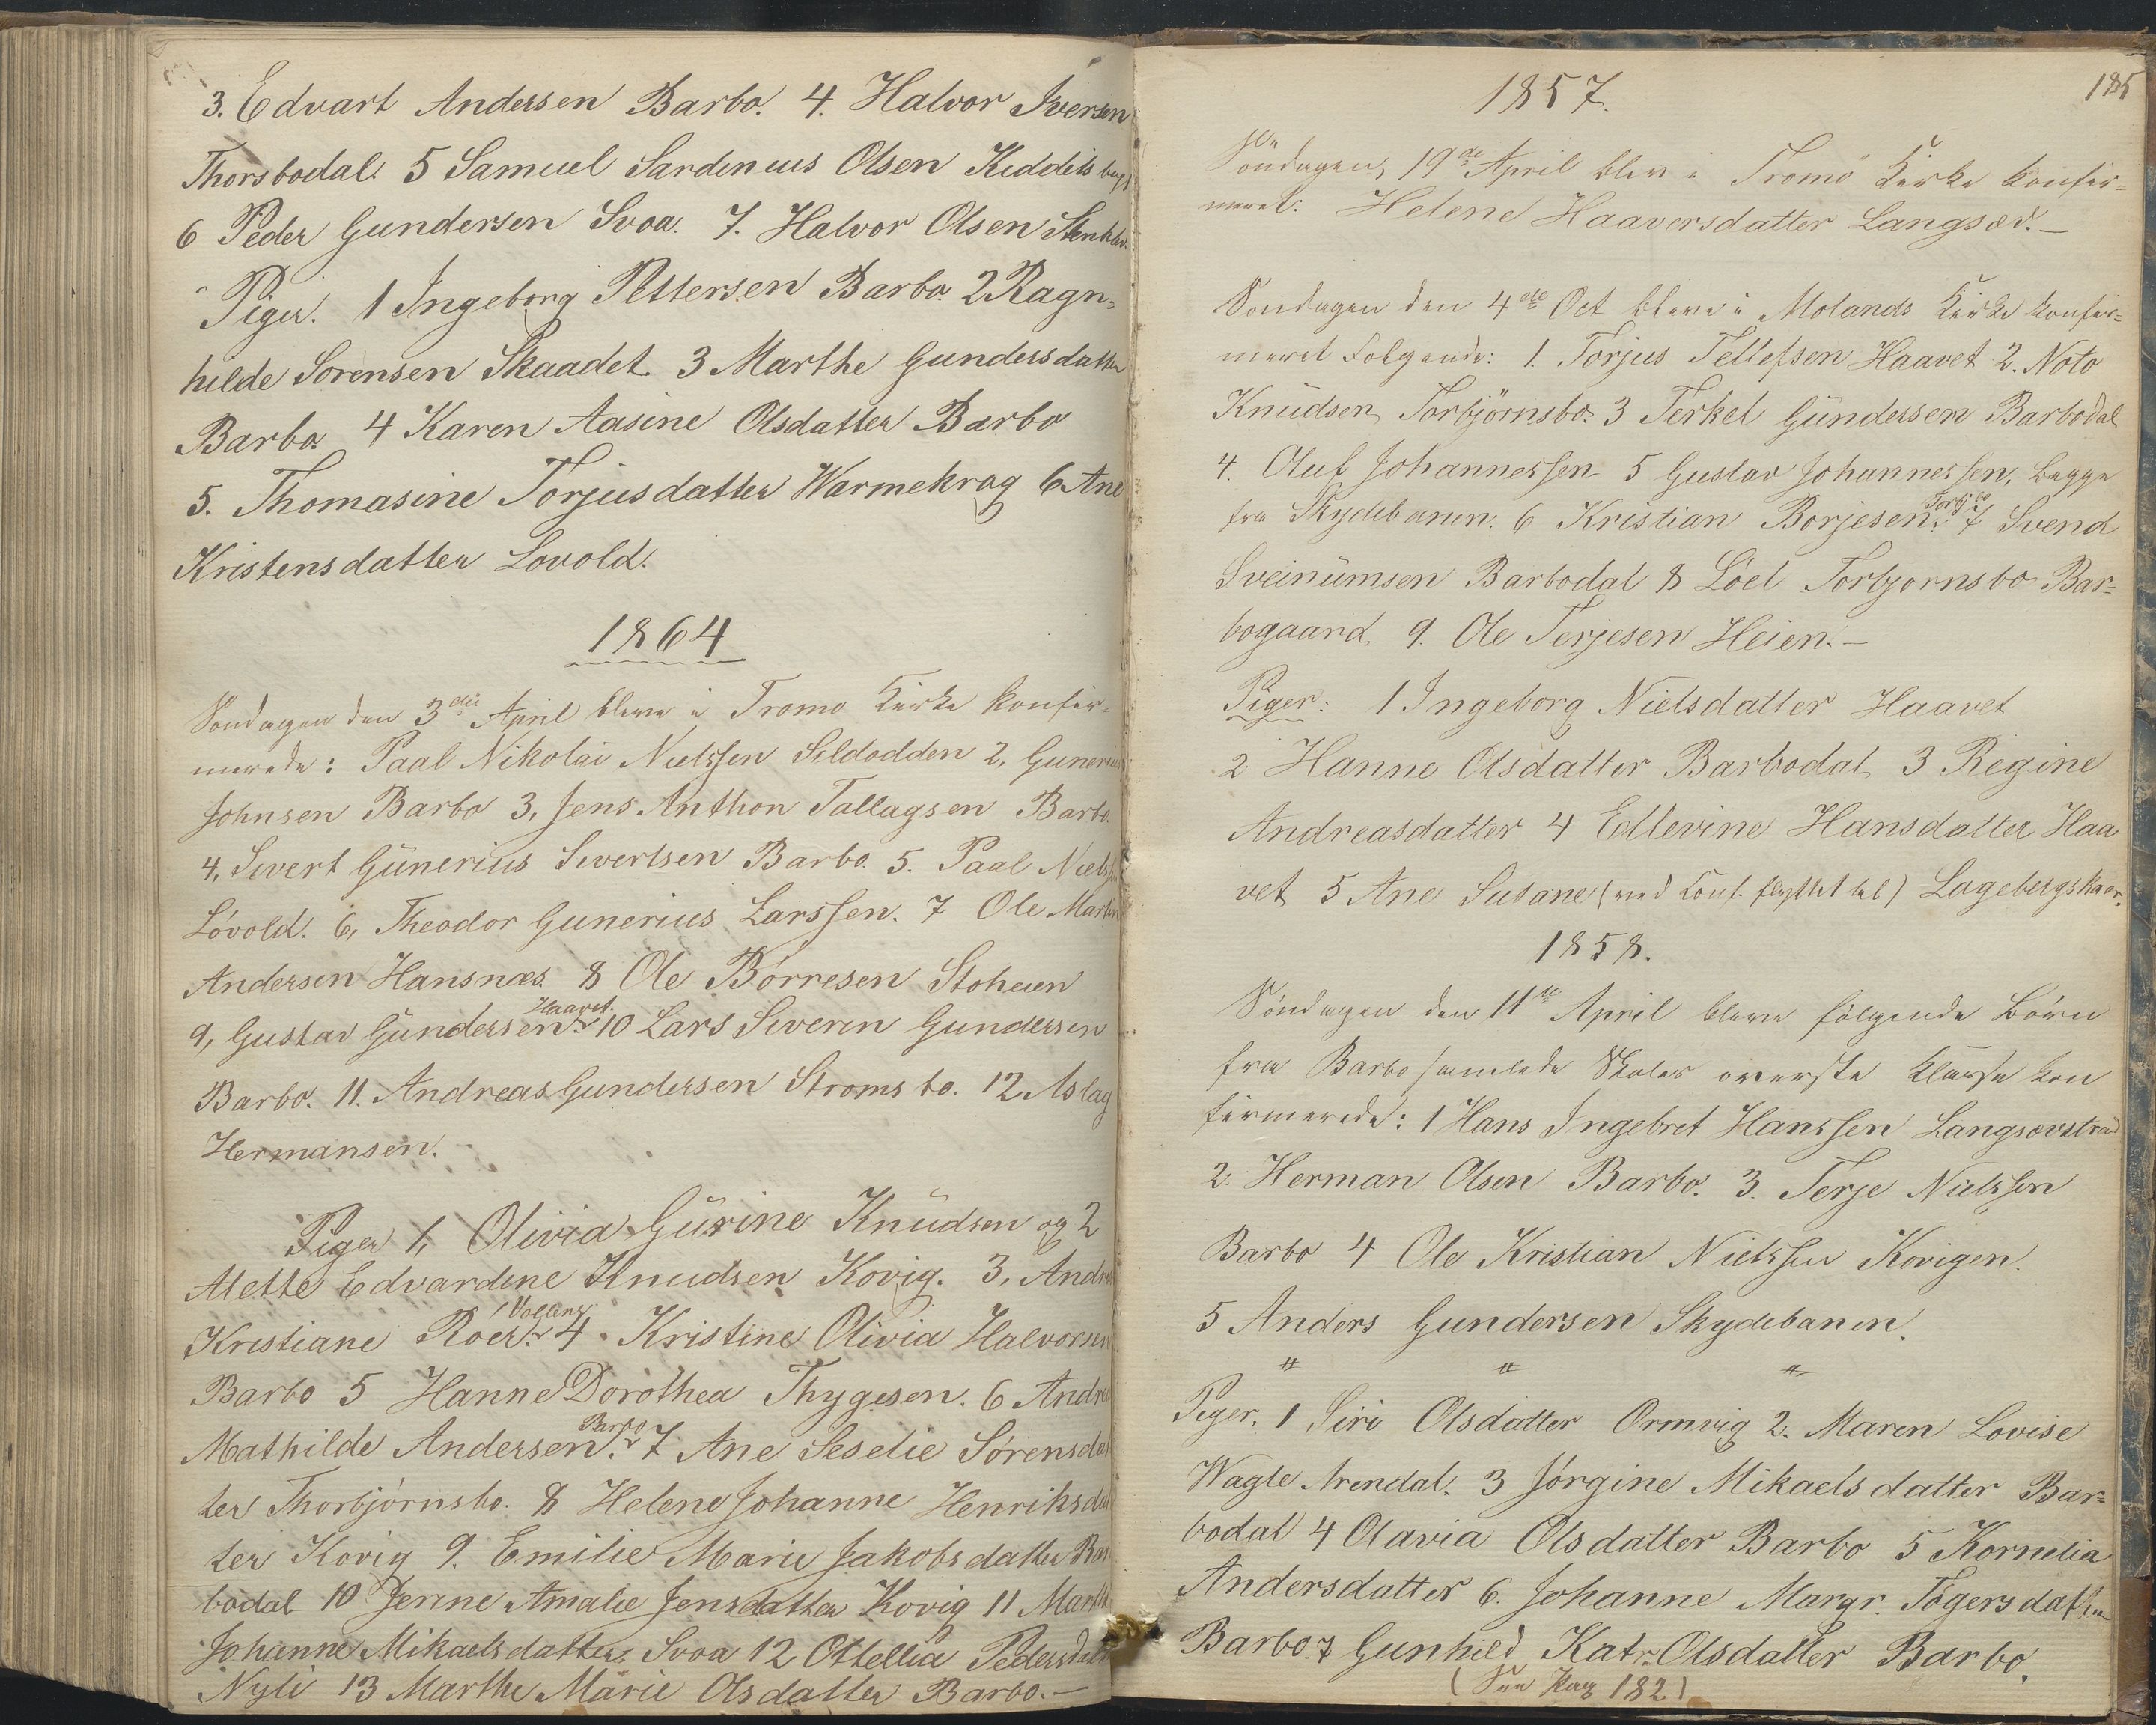 3. Edvart Andersen Barbo. 4. Halvor Iversen
Thorsbodal. 5 Samuel Sardineus Olsen
6 Peder Gundersen Svoa. 7. Halvor Olsen
Piger. 1 Ingeborg Pettersen Barbo. 2 Ragn-
hilde Sorensen Skaadet. 3 Marthe Gundersdatter
Barbo. 4 Karen Aasine Olsdatter Barbo
5. Thomasine Torjusdatter Warmekrag 6 Ane
Kristensdatter Lovold.
1864
Sondagen den 3die April bleve i Tromo Kirke konfir-
merede: Paal Nikolai Nielssen Sildodden 2, Gunerius
Johnsen Barbo 3, Jens Anthon Tallagsen Barbo.
4, Sivert Günerius Sivertsen Barbo. 5. Paal Nielss
Lóvold. 6, Theodor Gunerius Larssen. 7 Ole Martin
Andersen Hansnæs. 8 Ole Börresen Stoheien
9, Gustav Gündersen Haavet. 10 Lars Severin Gundersen
Barbo. 11. Andreas Gundersen Stromsbo. 12 Aslag
Hermansen.
Piger 1, Olivia Gürine Knüdsen og 2
Alette Edvardine Knudsen Kovig. 3, Andr
Kristiane Roer. 4. Kristine Olivia Halvorsen
Barbo 5 Hanne Dorothea Thygesen. 6 Andre
Mathilde Andersen. Barbo 7 Ane Seselie Sórensdat
ter Thorbjórnsbo. 8 Helene Johanne Henriksdat
ter Kovig 9. Emilie Marie Jakobsdatter Bar
bodal 10 Jenine Amalie Jensdatter Kovig 11 Marthe
Johanne Mikaelsdatter. Svoa 12 Ottellia Pedersdatt
Nyli 13 Marthe Märie Olsdatter Barbo.—
185
1857.
Söndagen, 19de April blev i Tromö Kirke konfir=
meret: Helene Haaversdatter Langsæd.—
Söndagen den 4de Oct bleve i Molands Kirke konfir=
meret Folgende: 1. Torjus Tellefsen Haavet 2. Noto
Knüdsen, Torbjörnsbo. 3 Terkel Gündersen Barbodal
4. Oluf Johannessen 5 Gustav Johannessen, begge
fra Skydebanen. 6 Kristian Borjesen. Torbjbo 7 Svend
Sveinümsen Barbodal 8 Löel Torbjornsbo Bar=
bogaard 9. Ole Terjesen Heien.—
Piger: 1 Ingeborg Nielsdatter Haavet
2 Hanne Olsdatter Barbodal 3 Regine
Andreasdatter 4 Edlevine Hansdatter Haa
vet 5 Ane Susane (ved Conf. flyttet til) Lagebergskaar.
1858.
Söndagen den 11te April bleve fölgende Börn
fra Barbo samlede Skoles överste Klasse kon
firmerede: 1 Hans Ingebret Hanssen Langsævstrand
2. Herman Olsen Barbo. 3. Terje Nielssen
Barbo 4 Ole Kristian Nielssen Kovigen.
5 Anders Gundersen Skydebanen.
" " "
Piger. 1 Siri Olsdatter Ormvig 2. Maren Lovise
Wagle Arendal. 3 Jórgine Mikaelsdatter Bar=
bodal 4 Olavia Olsdatter Barbo 5 Kornelia
Andersdatter 6. Johanne Margr. Tögersdatter
Barbo. 7 Gunhild Katr. Olsdatter Barbo.
(See Pag 182)